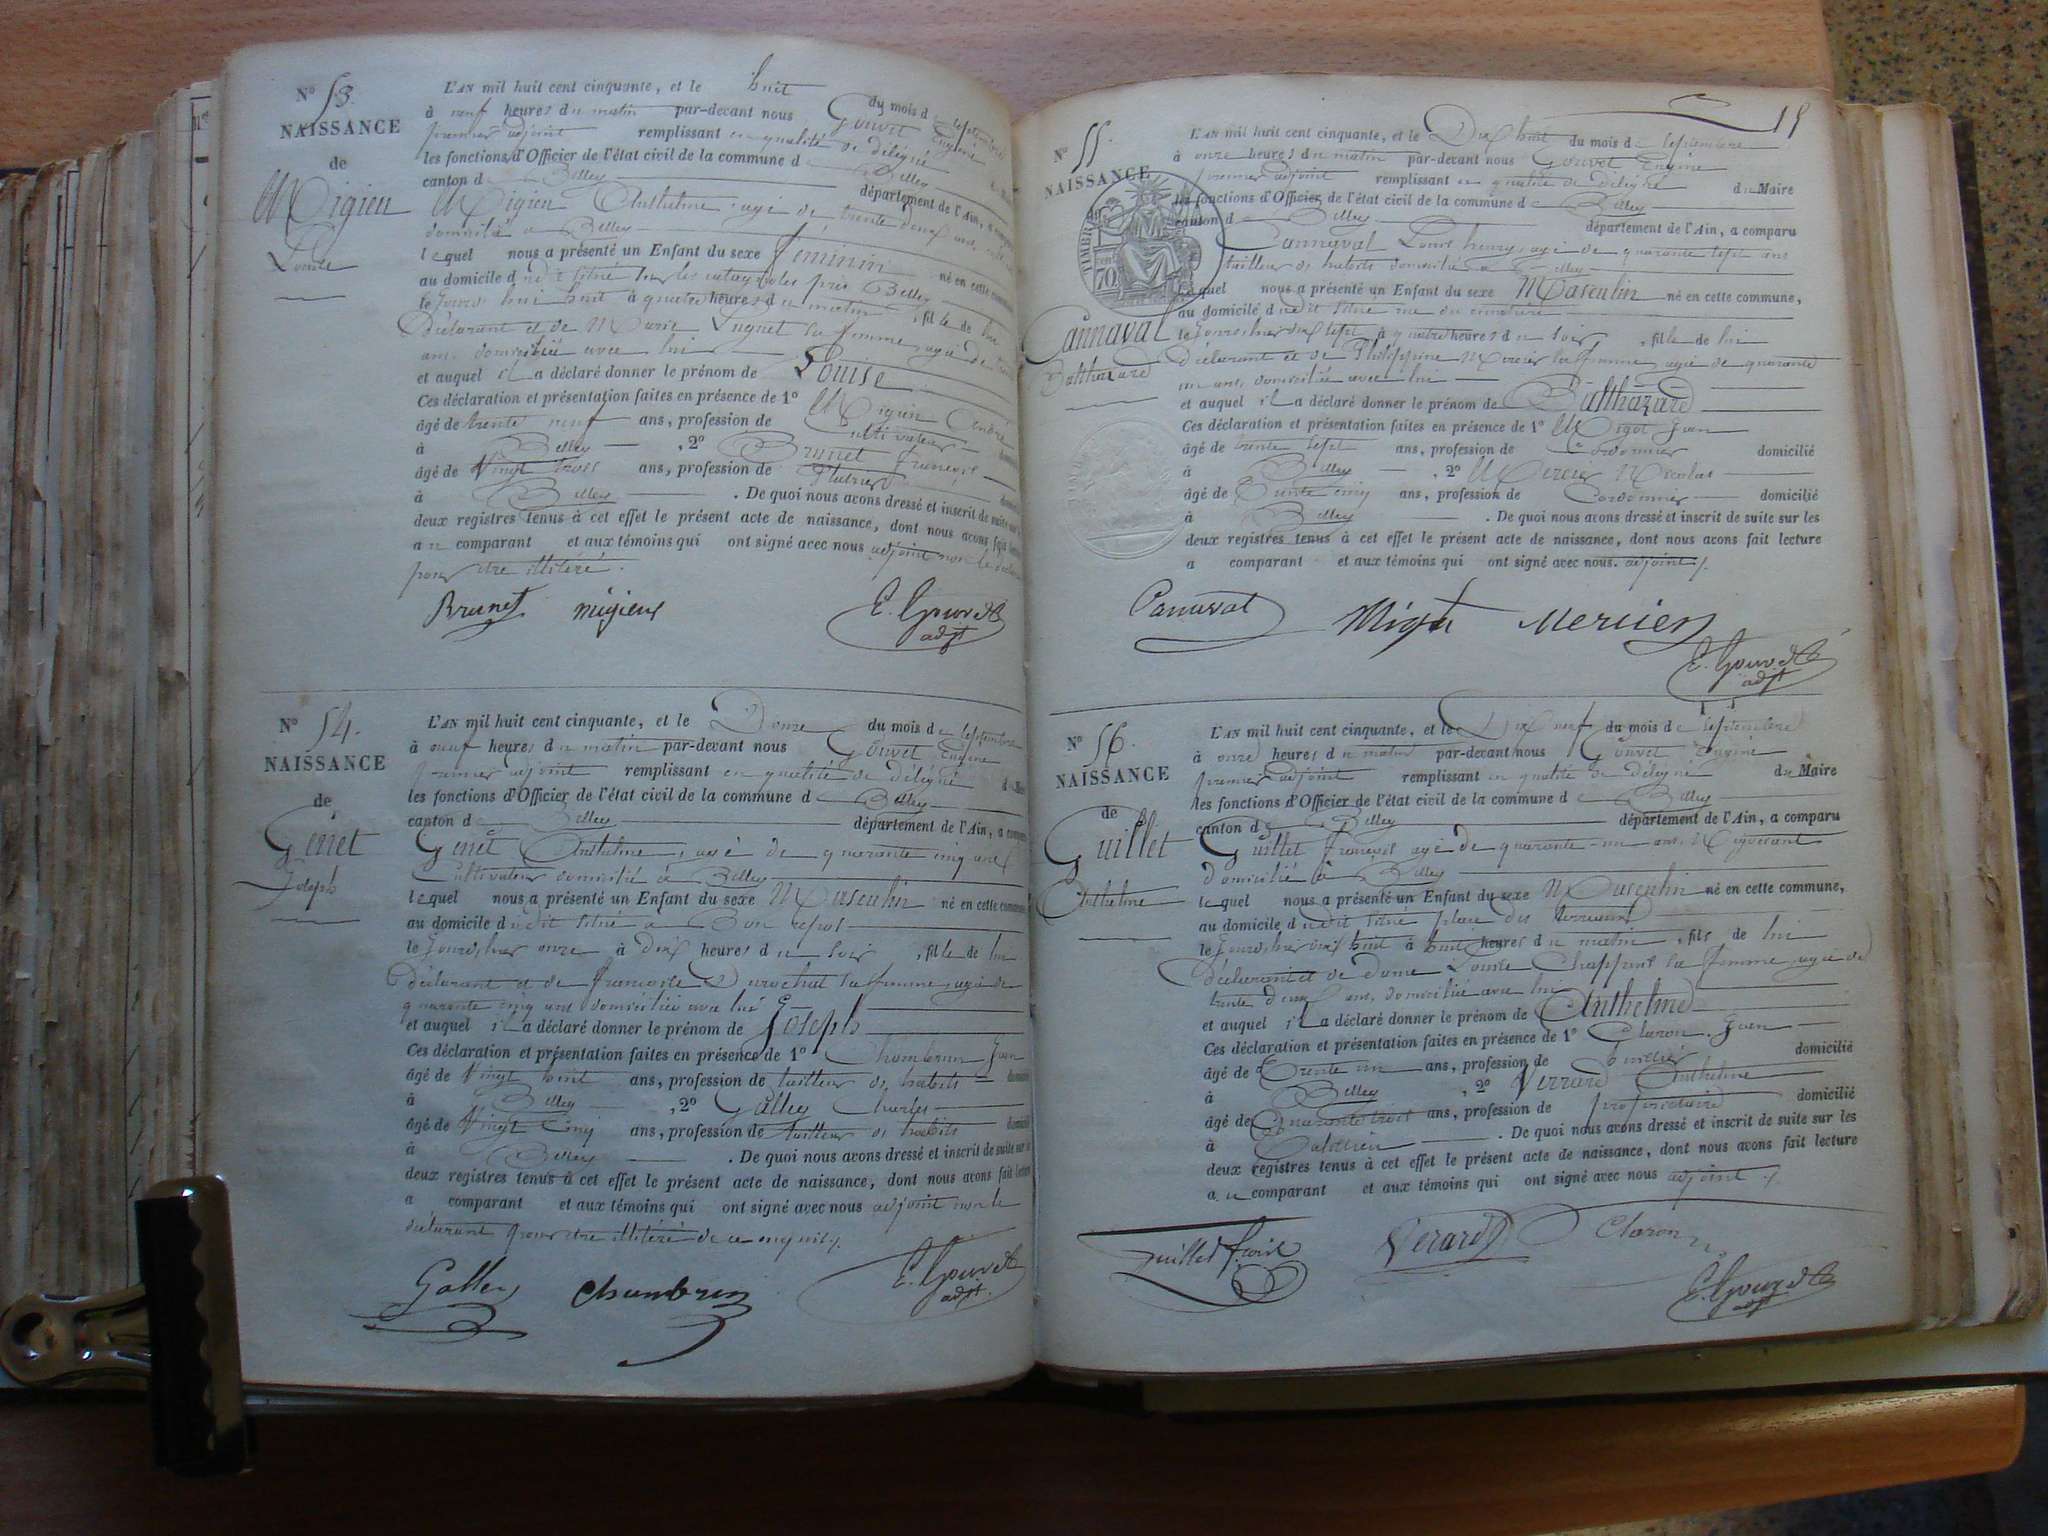 N° 53.
NAISSANCE
de
Migieu
Louise
L'AN mil huit cent cinquante, et le huit du mois de septembre
à neuf heures du matin par-devant nous Gouvet Eugène
premier adjoint remplissant en qualité de délégué
les fonctions d'Officier de l'état civil de la commune de Belley
canton de Belley département de l'Ain, a comparu
Migieu Anthelme, agé de trente deux ans,
domicilié à Belley
lequel nous a présenté un Enfant du sexe féminin né en cette commune
au domicile dudit situé sur les près Belley
le jourd'hui huit à quatre heures du matin, fille de lui
déclarant et de Marie Lugnet sa femme, agée de
ans, domiciliée avec lui
et auquel il a déclaré donner le prénom de Louise
Ces déclaration et présentation faites en présence de 1° Migieu André
âgé de trente neuf ans, profession de cultivateur
à Belley, 2° Brunet françois
âgé de Vingt trois ans, profession de Platrier
à Belley. De quoi nous avons dressé et inscrit de suite sur
deux registres tenus à cet effet le présent acte de naissance, dont nous avons fait lecture
au comparant et aux témoins qui ont signé avec nous adjoint non le
pour être illitéré.
Brunet migieux E. Gouvet
adjt
N° 54.
NAISSANCE
de
Genet
Joseph
L'AN mil huit cent cinquante, et le Douze du mois de septembre
à neuf heures du matin par-devant nous Gouvet Eugène
premier adjoint remplissant en qualité de délégué
les fonctions d'Officier de l'état civil de la commune de Belley
canton de Belley département de l'Ain, a comparu
Genet Anthelme, agé de quarante cinq ans
Cultivateur domicilié à Belley
lequel nous a présenté un Enfant du sexe Masculin né en cette commune
au domicile dudit situé à Bon repos
le jourd'hier onze à dix heures du soir, fils de lui
déclarant et de françoise Durochat sa femme, agée de
quarante cinq ans domiciliée avec lui
et auquel il a déclaré donner le prénom de Joseph
Ces déclaration et présentation faites en présence de 1° Chambrun Jean
âgé de Vingt huit ans, profession de tailleur d'habits
à Belley, 2° Galley Charles
âgé de Vingt Cinq ans, profession de tailleur d'habits
à Belley. De quoi nous avons dressé et inscrit de suite sur
deux registres tenus à cet effet le présent acte de naissance, dont nous avons fait lecture
a comparant et aux témoins qui ont signé avec nous adjoint non le
déclarant pour être illitéré de ce enquis.
Galley Chambrun E. Gouvet
adjt.
N° 55.
NAISSANCE
TIMBRE
70
Cannaval
Balthazard
L'AN mil huit cent cinquante, et le Dix huit du mois de septembre
à onze heures du matin par-devant nous Gouvet Eugène
premier adjoint remplissant en qualité de délégué du Maire
les fonctions d'Officier de l'état civil de la commune de Belley
canton de Belley département de l'Ain, a comparu
Cannaval Louis henry, agé de quarante sept ans
tailleur d'habits domicilié à Belley
lequel nous a présenté un Enfant du sexe Masculin né en cette commune,
au domicile dudit situé rue du cimetière
le jourd'hier dix sept à quatre heures du soir, fils de lui
déclarant et de Philippine Mercier sa femme, agée de quarante
un ans, domiciliée avec lui
et auquel il a déclaré donner le prénom de Balthazard
Ces déclaration et présentation faites en présence de 1° Migot Jean
âgé de trente sept ans, profession de Cordonnier domicilié
à Belley, 2° Mercier Nicolas
âgé de Trente cinq ans, profession de Cordonnier domicilié
à Belley. De quoi nous avons dressé et inscrit de suite sur les
deux registres tenus à cet effet le présent acte de naissance, dont nous avons fait lecture
a comparant et aux témoins qui ont signé avec nous. adjoint.
Canaval Migot Mercier
E. Gouvet
adjt
N° 56.
NAISSANCE
de
Guillet
Anthelme
L'AN mil huit cent cinquante, et le Dix neuf du mois de septembre
à onze heures du matin par-devant nous Gouvet Eugène
premier adjoint remplissant en qualité de délégué du Maire
les fonctions d'Officier de l'état civil de la commune de Belley
canton de Belley département de l'Ain, a comparu
Guillet françois agé de quarante-un ans, Négociant
domicilié à Belley
lequel nous a présenté un Enfant du sexe Masculin né en cette commune,
au domicile dudit situé place des terreaux
le jourd'hier dix huit à huit heures du matin, fils de lui
déclarant et de dame Louise Chappuis sa femme, agée de
trente deux ans, domiciliée avec lui
et auquel il a déclaré donner le prénom de Anthelme
Ces déclaration et présentation faites en présence de 1° Claron Jean
âgé de Trente un ans, profession de huissier domicilié
à Belley, 2° Verrard Anthelme
âgé de Quarante trois ans, profession de propriétaire domicilié
à. De quoi nous avons dressé et inscrit de suite sur les
deux registres tenus à cet effet le présent acte de naissance, dont nous avons fait lecture
au comparant et aux témoins qui ont signé avec nous adjoint.
Guillet fçois Verard Claron
E. Gouvet
adjt